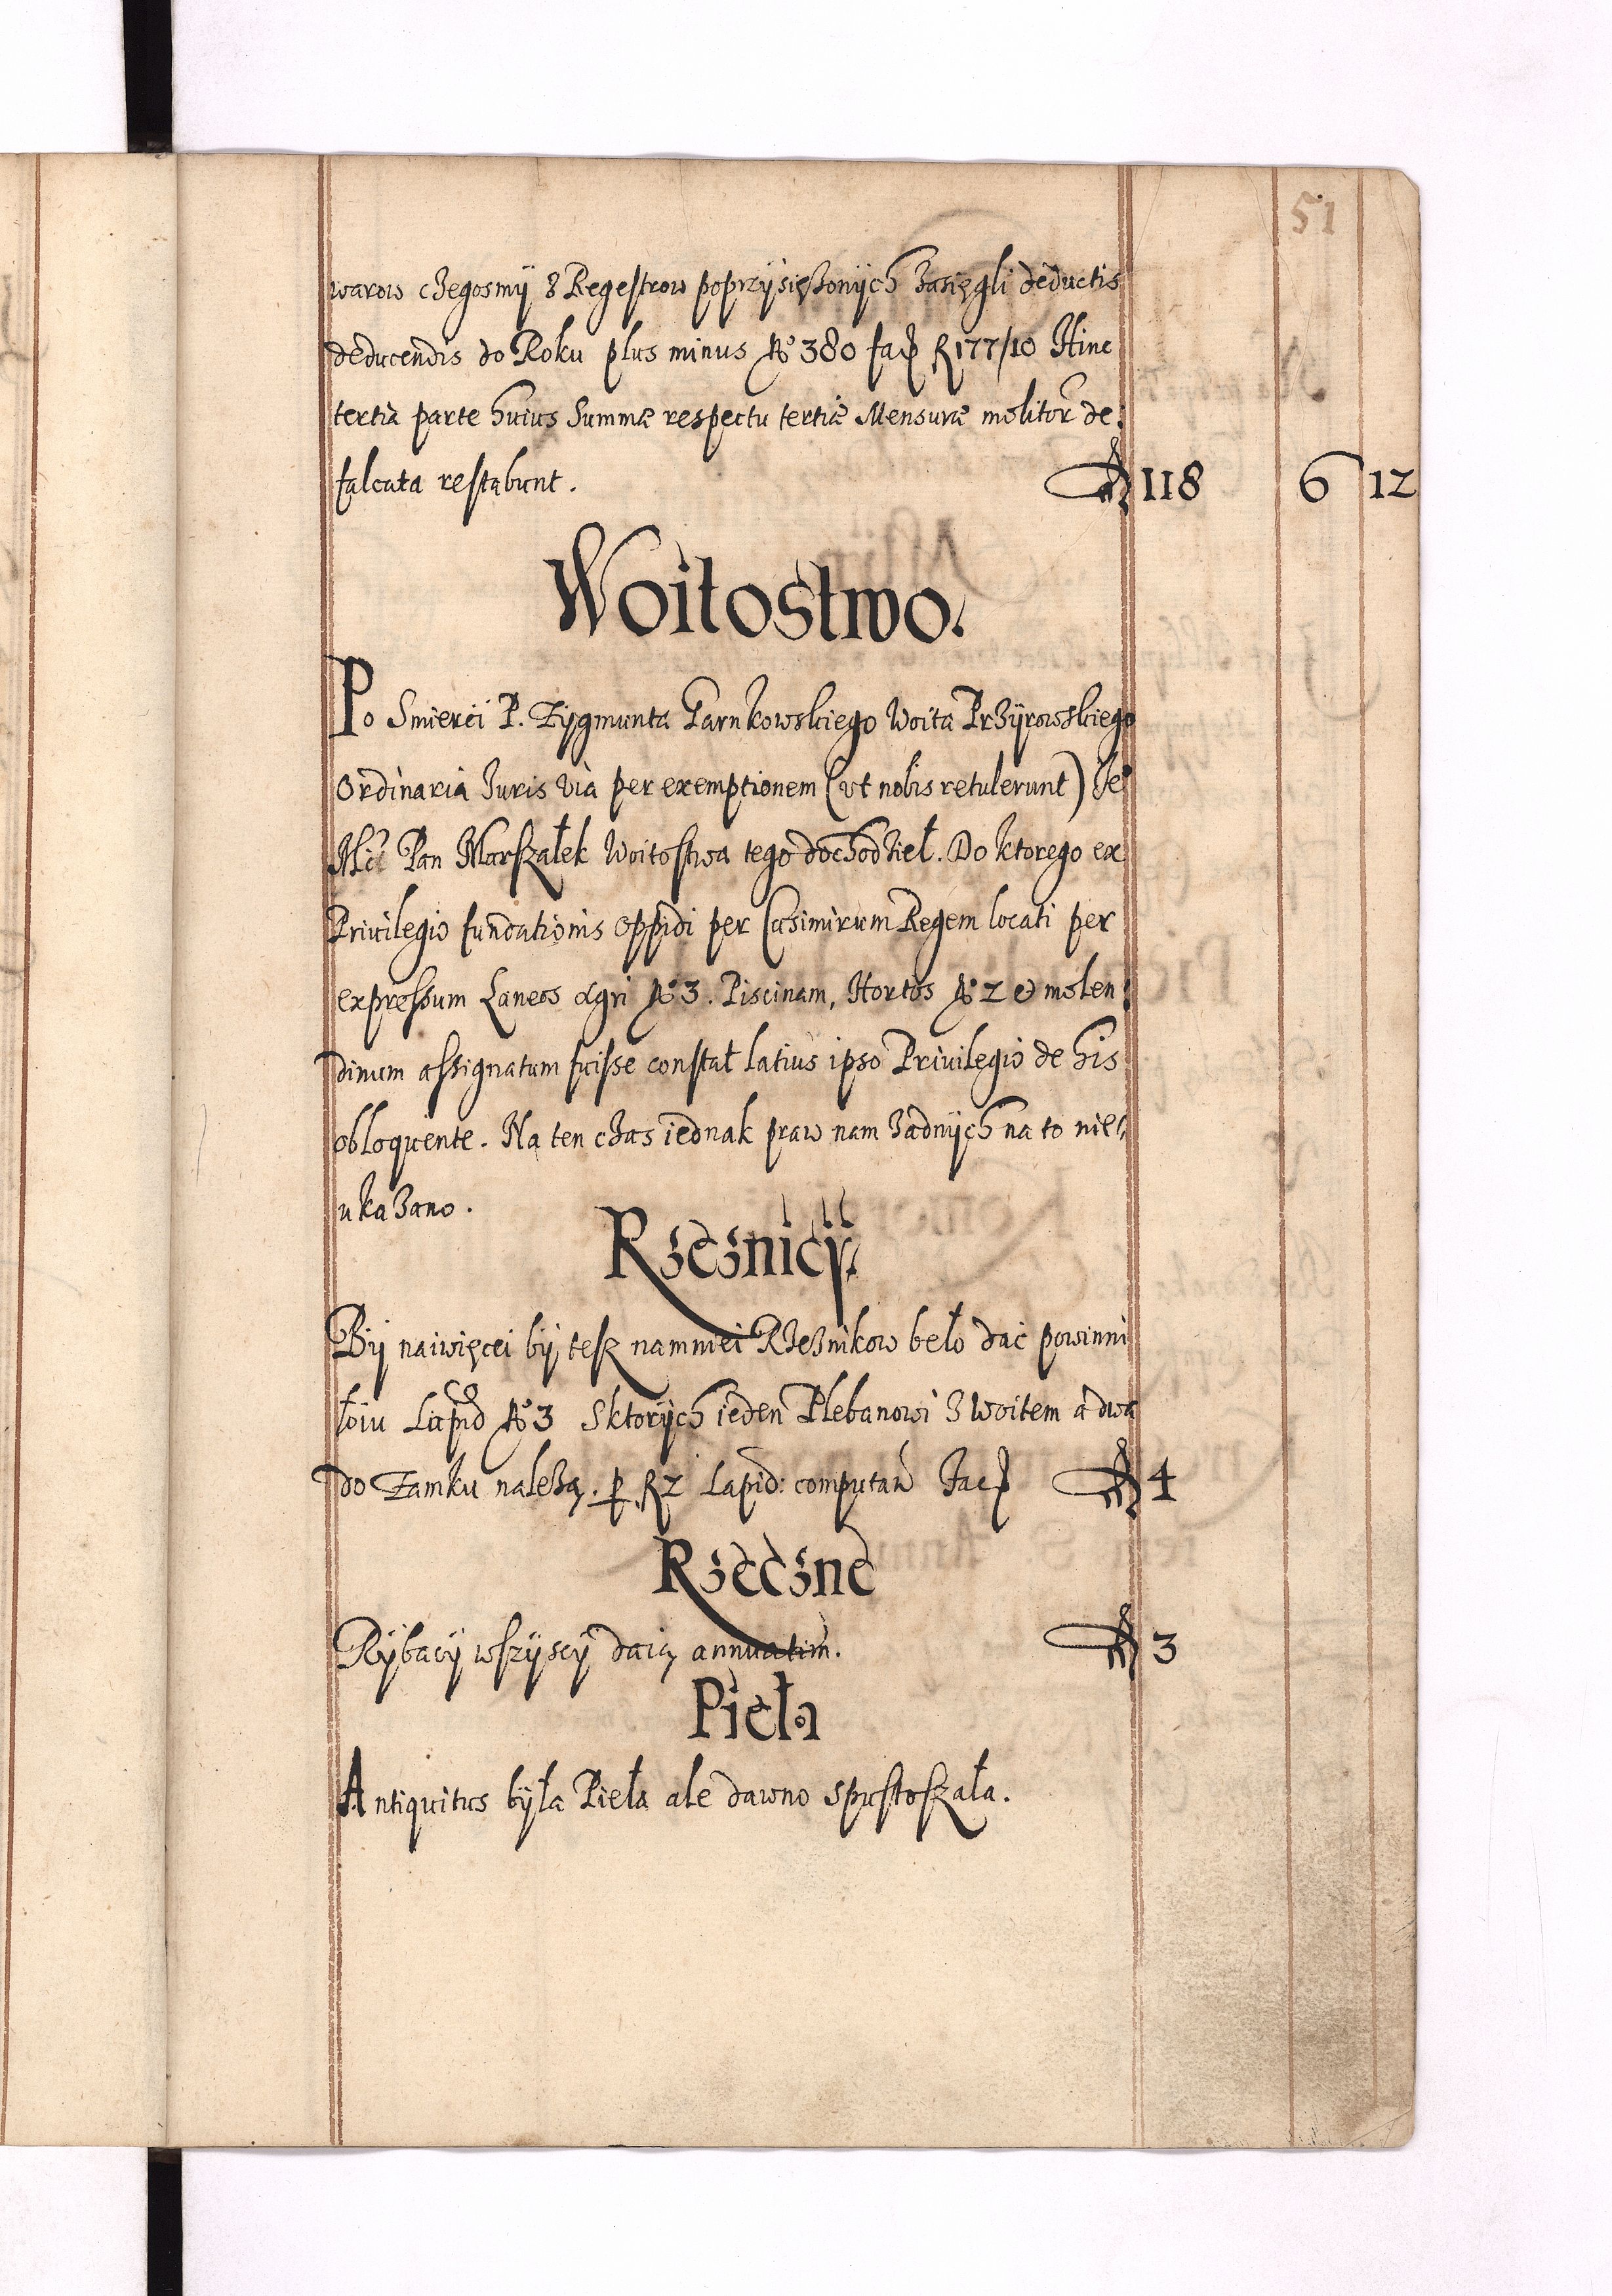 51
warow czegosmÿ z Regestrow poprzÿsiężonÿch zasięgli deductis
deducendis do Roku plus minus No 380 fa R 177/10 Hinc
tertia parte huius Summæ respectu tertiæ Mensuræ molitor de:
falcata restabunt. 118 6 12
Woitostwo.
Po Smierci P. Zÿgmunta Garnkowskiego Woita Przÿrowskiego
Ordinaria Iuris via per exemptionem (vt nobis retulerunt) Je
Mć Pan Marszałek Woitostwa tego dochodził. Do ktorego ex
Priuilegio fundationis oppidi per Casimirum Regem locati per
expressum Laneos agri No 3. Piscinam, Hortos No 2 et molen:
dinum assignatum fuisse constat latius ipso Priuilegio de his
obloquente. Na ten czas iednak praw nam zadnÿch na to nie
ukazano.
Rzeznicÿ.
Bÿ naiwięcei bÿ tesz namniei Rzeznikow beło dać powinni
łoiu Lapid No 3 Sktorÿch ieden Plebanowi z woitem a dwa
do Zamku należą. p R 2 Lapid: computan fac 4
Rzeczne
Rÿbacÿ wszÿscÿ daią annuatim. 3
Pieła
Antiquitus bÿła Pieła ale dawno spustoszała.